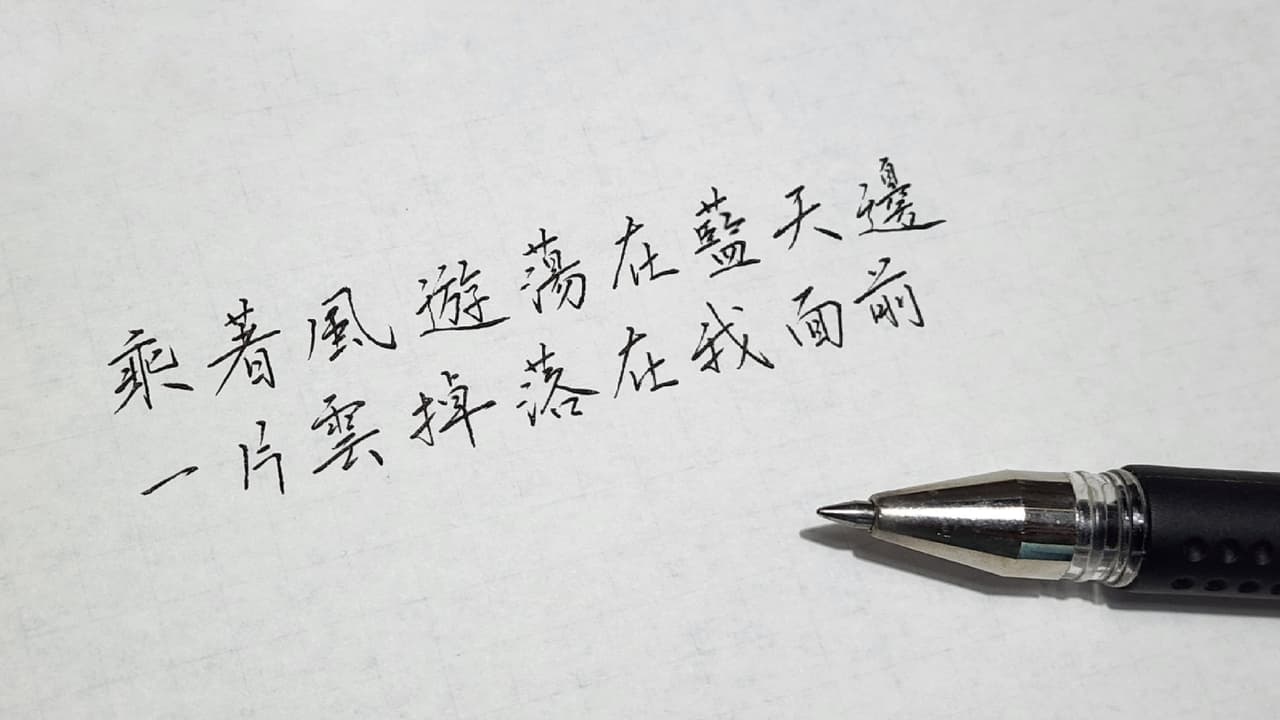 乘著風遊蕩在藍天邊
一片雲掉落在我面前